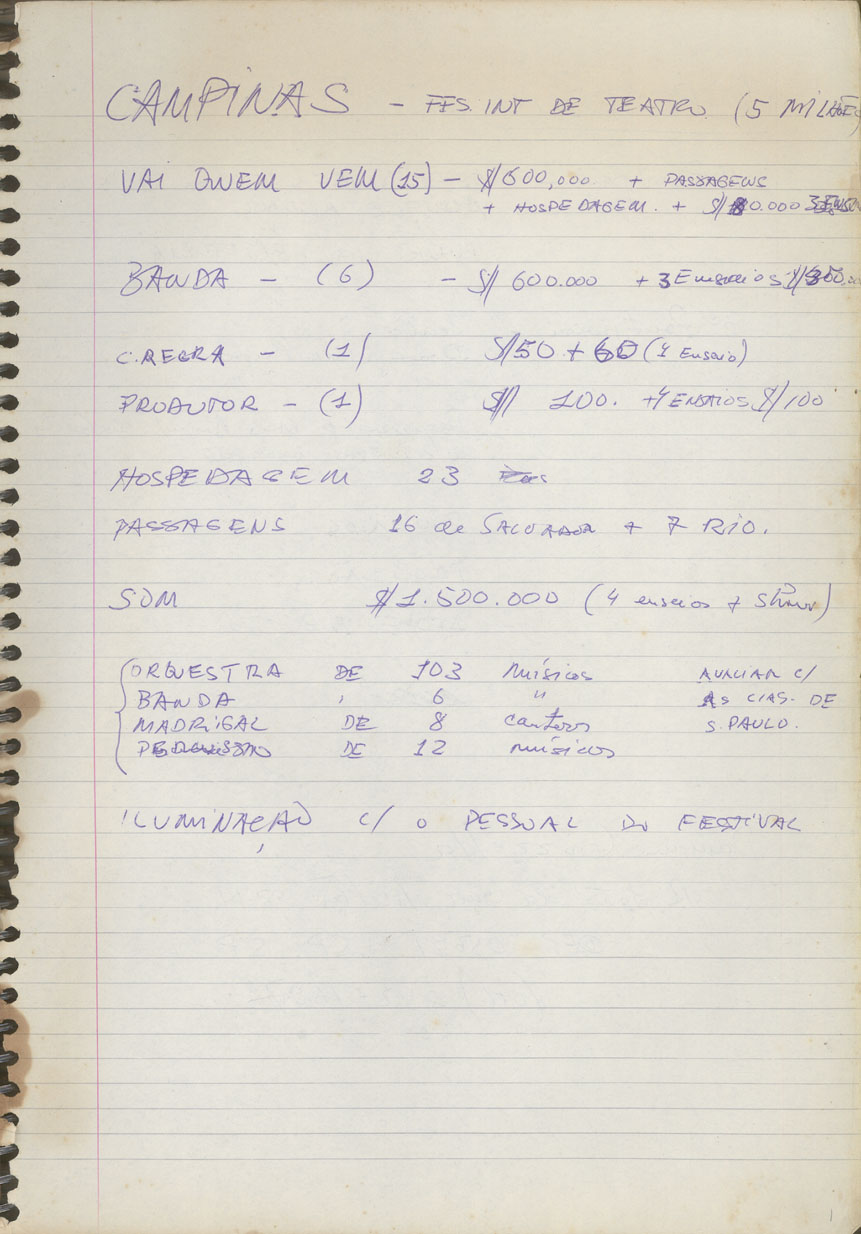 CAMPINAS - FES. INT DE TEATRO (5 MILHÕES
VAI QUEM VEM (15) - $/600,000 + PASSAGENS
+ HOSPEDAGEM. + $/ 0.000
BANDA - (6) - $/ 600.000 + 3 Ensaios
C.REGRA - (1) $/50 + 60 (1 Ensaio)
PRODUTOR - (1) $/ 100. + 4 ENSAIOS $/100
HOSPEDAGEM 23
PASSAGENS 16 de SALVADOR + 7 RIO.
SOM $/1.500.000 (4 ensaios + Show)
ORQUESTRA DE 103 músicos AVALIAR C/
BANDA , 6 " AS CIAS. DE
MADRIGAL DE 8 cantores S. PAULO.
PERCUSSÃO DE 12 músicos
ILUMINAÇÃO C/ O PESSOAL DO FESTIVAL